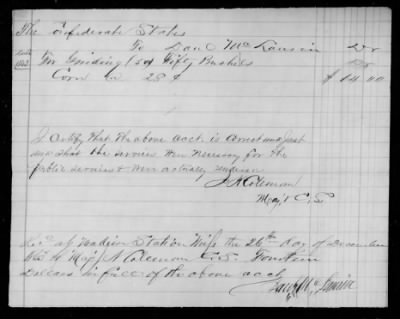 The Confederate States
To Danl McLaurin Dr
1863 For Grinding (50) Fifty Bushels
Corn @ 28 ¢ $ 14 00
I certify that the above acct. is correct and just
and that the services were necessary for the
public service & were actually rendered
N Coleman
Maj & C.S.
Rec'd at Madison Station Miss the 26th day of December
1863 of Maj N Coleman C.S. Fourteen
Dollars in full of the above acct
Danl McLaurin